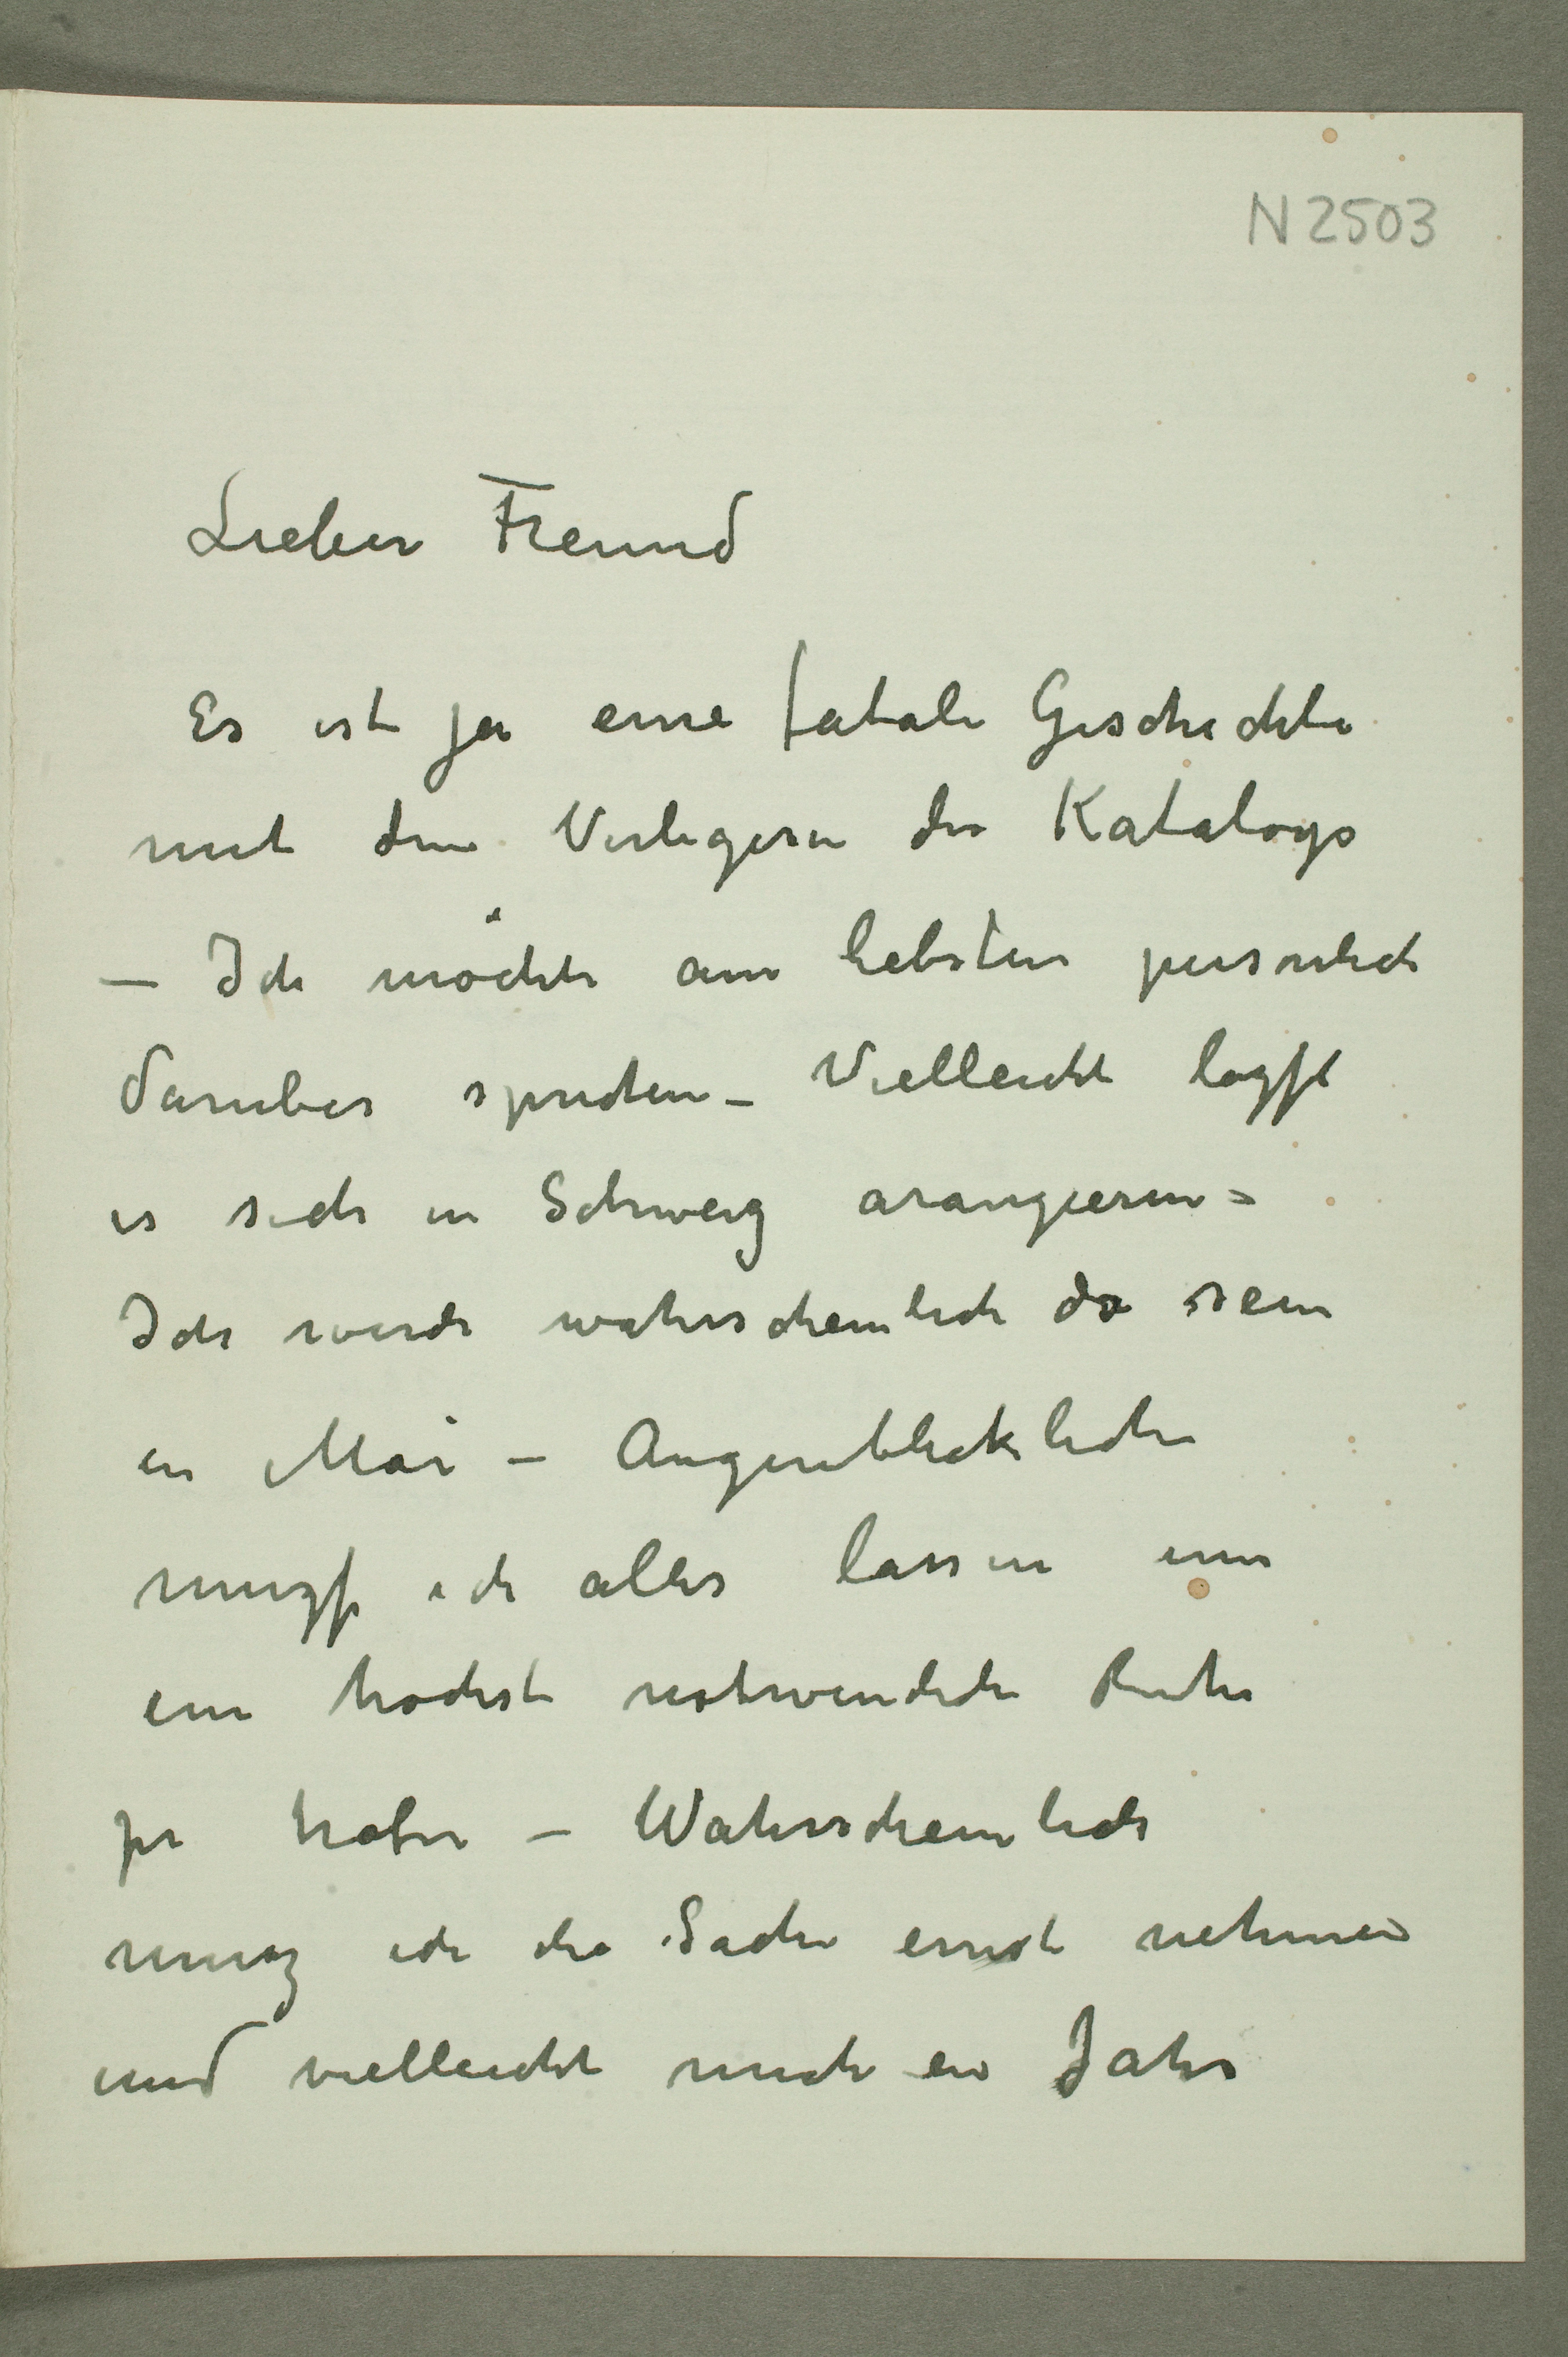 N 2503
Lieber Freund
Es ist ja eine fatale Geschichte
mit dem Verlegern des Katalogs
– Ich möchte am liebsten persnlich
daruber sprechen – Vielleicht lazst
es sich in Schweiz arangieren –
Ich werde wahrscheinlich da sein
in Mai – Augenblickliche
muzs ich alles lassen um
eine hochst notwendiche Ruhe
zu haben – Wahrscheinlich
musz ich die Sache ernst nehmen
und vielleicht mich ein Jahr